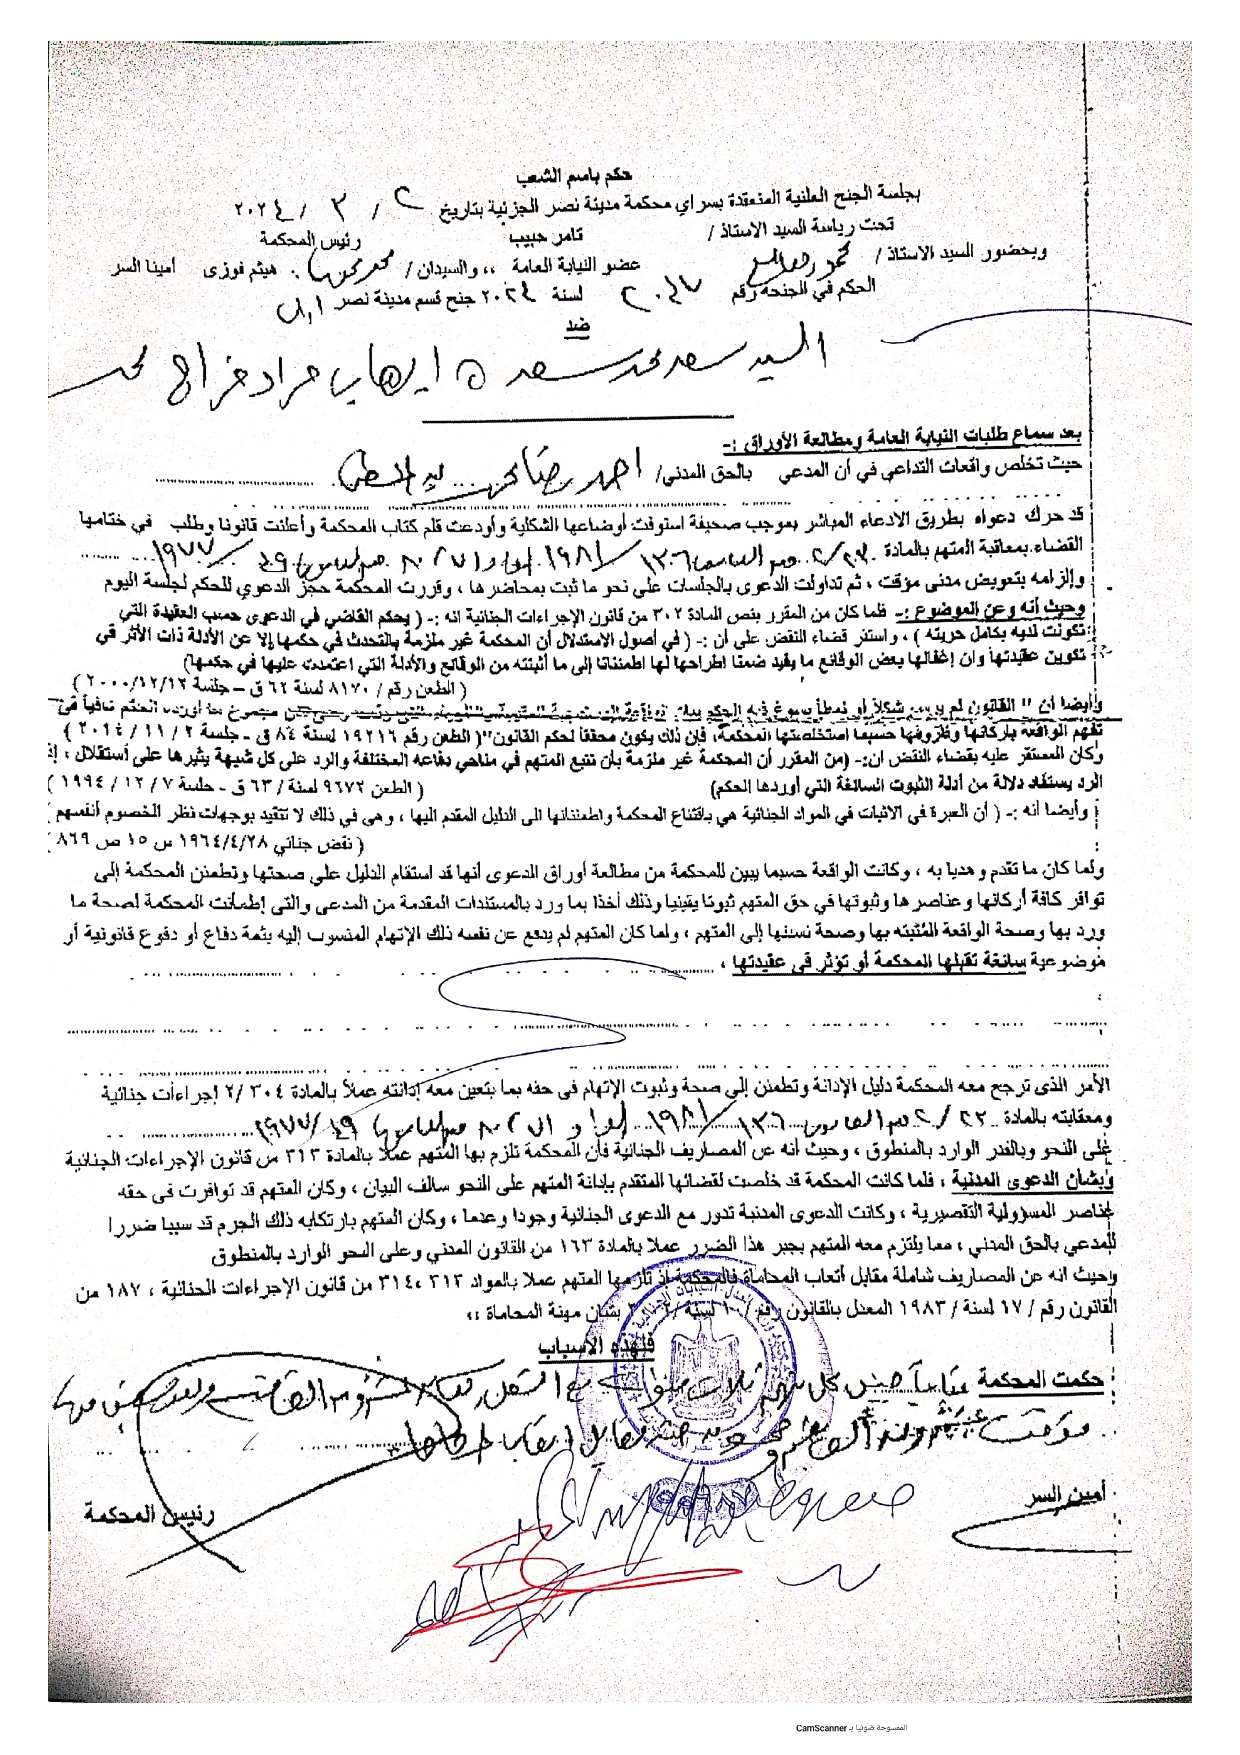 حكم باسم الشعب
بجلسة الجنح العلنية المنعقدة بسراي محكمة مدينة نصر الجزئية بتاريخ ٢ / ٣ / ٢٠٢٤
تحت رياسة السيد الاستاذ / تامر حبيب رئيس المحكمة
وبحضور السيد الاستاذ / محمود عضو النيابة العامة ،، والسيدان / هيثم فوزى أمينا السر
الحكم في الجنحة رقم لسنة ٢٠٢٤ جنح قسم مدينة نصر اول
ضد
السيد سعد محمد سعد ايهاب مراد فراج محمد
بعد سماع طلبات النيابة العامة ومطالعة الأوراق :-
حيث تخلص واقعات التداعي في أن المدعي بالحق المدني/ احمد رضا
قد حرك دعواه بطريق الادعاء المباشر بموجب صحيفة استوفت أوضاعها الشكلية وأودعت قلم كتاب المحكمة وأعلنت قانونا وطلب في ختامها
القضاء بمعاقبة المتهم بالمادة ١٣٦ / ١٩٨١ ١٩٧٧
وإلزامه بتعويض مدنى مؤقت ، ثم تداولت الدعوى بالجلسات على نحو ما ثبت بمحاضرها ، وقررت المحكمة حجز الدعوي للحكم لجلسة اليوم
وحيث أنه وعن الموضوع :- فلما كان من المقرر بنص المادة ٣٠٢ من قانون الإجراءات الجنائية انه :- ( يحكم القاضي في الدعوى حسب العقيدة التي
تكونت لديه بكامل حريته ) ، واستقر قضاء النقض على أن :- ( في أصول الاستدلال أن المحكمة غير ملزمة بالتحدث في حكمها إلا عن الأدلة ذات الأثر في
تكوين عقيدتها وان إغفالها بعض الوقائع ما يفيد ضمنا اطراحها لها اطمئنانا إلى ما أثبتته من الوقائع والأدلة التي اعتمدت عليها في حكمها)
( الطعن رقم / ٨١٧٠ لسنة ٦٢ ق – جلسة ٢٠٠٠/١٢/١٢ )
وأيضا أن " القانون لم يرسم شكلاً أو نمطاً يصوغ فيه الحكم بيان مجموع ما أورده الحكم كافياً فى
تفهم الواقعة بأركانها وظروفها حسبما استخلصتها المحكمة، فإن ذلك يكون محققاً لحكم القانون"( الطعن رقم ١٩٢١٦ لسنة ٨٤ ق - جلسة ٢ / ١١ / ٢٠١٤ )
وكان المستقر عليه بقضاء النقض ان:- (من المقرر أن المحكمة غير ملزمة بأن تتبع المتهم في مناحي دفاعه المختلفة والرد على كل شبهة يثيرها على أستقلال ، إذ
الرد يستفاد دلالة من أدلة الثبوت السائغة التي أوردها الحكم) ( الطعن ٩٦٧٢ لسنة / ٦٣ ق – جلسة ٧ / ١٢ / ١٩٩٤ )
وأيضا أنه :- ( أن العبرة في الاثبات في المواد الجنائية هي باقتناع المحكمة واطمئنانها الى الدليل المقدم اليها ، وهى في ذلك لا تتقيد بوجهات نظر الخصوم أنفسهم )
( نقض جنائي ١٩٦٤/٤/٢٨ س ١٥ ص ٨٦٩ )
ولما كان ما تقدم وهديا به ، وكانت الواقعة حسبما يبين للمحكمة من مطالعة أوراق الدعوى أنها قد استقام الدليل على صحتها وتطمئن المحكمة إلى
توافر كافة أركانها وعناصرها وثبوتها في حق المتهم ثبوتا يقينيا وذلك أخذا بما ورد بالمستندات المقدمة من المدعى والتى إطمأنت المحكمة لصحة ما
ورد بها وصحة الواقعة المُثبته بها وصحة نسبتها إلى المتهم ، ولما كان المتهم لم يدفع عن نفسه ذلك الإتهام المنسوب إليه بثمة دفاع أو دفوع قانونية أو
موضوعية سائغة تقبلها المحكمة أو تؤثر فى عقيدتها ،
الأمر الذى ترجح معه المحكمة دليل الإدانة وتطمئن إلى صحة وثبوت الإتهام فى حقه بما يتعين معه إدانته عملاً بالمادة ٣٠٤ /٢ إجراءات جنائية
ومعاقبته بالمادة ١٣٦ / ١٩٨١ ٤٩ / ١٩٧٧
على النحو وبالقدر الوارد بالمنطوق ، وحيث أنه عن المصاريف الجنائية فأن المحكمة تلزم بها المتهم عملاً بالمادة ٣١٣ من قانون الإجراءات الجنائية
وبشأن الدعوى المدنية ، فلما كانت المحكمة قد خلصت لقضائها المتقدم بإدانة المتهم على النحو سالف البيان ، وكان المتهم قد توافرت فى حقه
عناصر المسؤولية التقصيرية ، وكانت الدعوى المدنية تدور مع الدعوى الجنائية وجودا وعدما ، وكان المتهم بارتكابه ذلك الجرم قد سببا ضررا
للمدعي بالحق المدني ، مما يلتزم معه المتهم بجبر هذا الضرر عملا بالمادة ١٦٣ من القانون المدني وعلى النحو الوارد بالمنطوق
وحيث انه عن المصاريف شاملة مقابل أتعاب المحاماة فالمحكمة إذ تلزمها المتهم عملا بالمواد ٣١٣ ٣١٤ من قانون الإجراءات الجنائية ، ١٨٧ من
القانون رقم / ١٧ لسنة / ١٩٨٣ المعدل بالقانون رقم / ١٠ لسنة / بشأن مهنة المحاماة ،،
فلهذه الأسباب
حكمت المحكمة غيابيا حبس كل متهم ثلاث سنوات مع الشغل
أمين السر رئيس المحكمة
الممسوحة ضوئيا بـ CamScanner